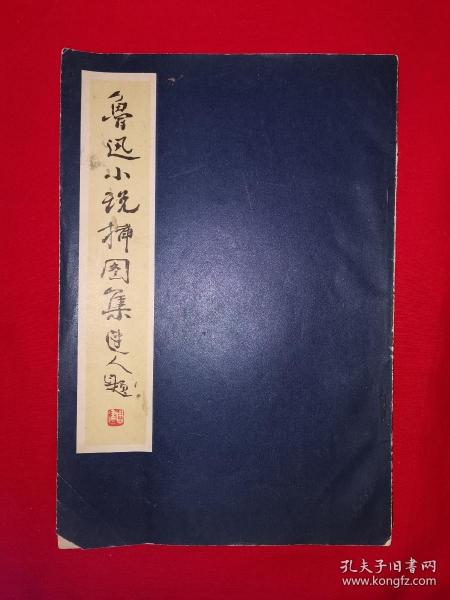 鲁迅小说插图集建人题
孔夫子旧书网
www.kongfz.com